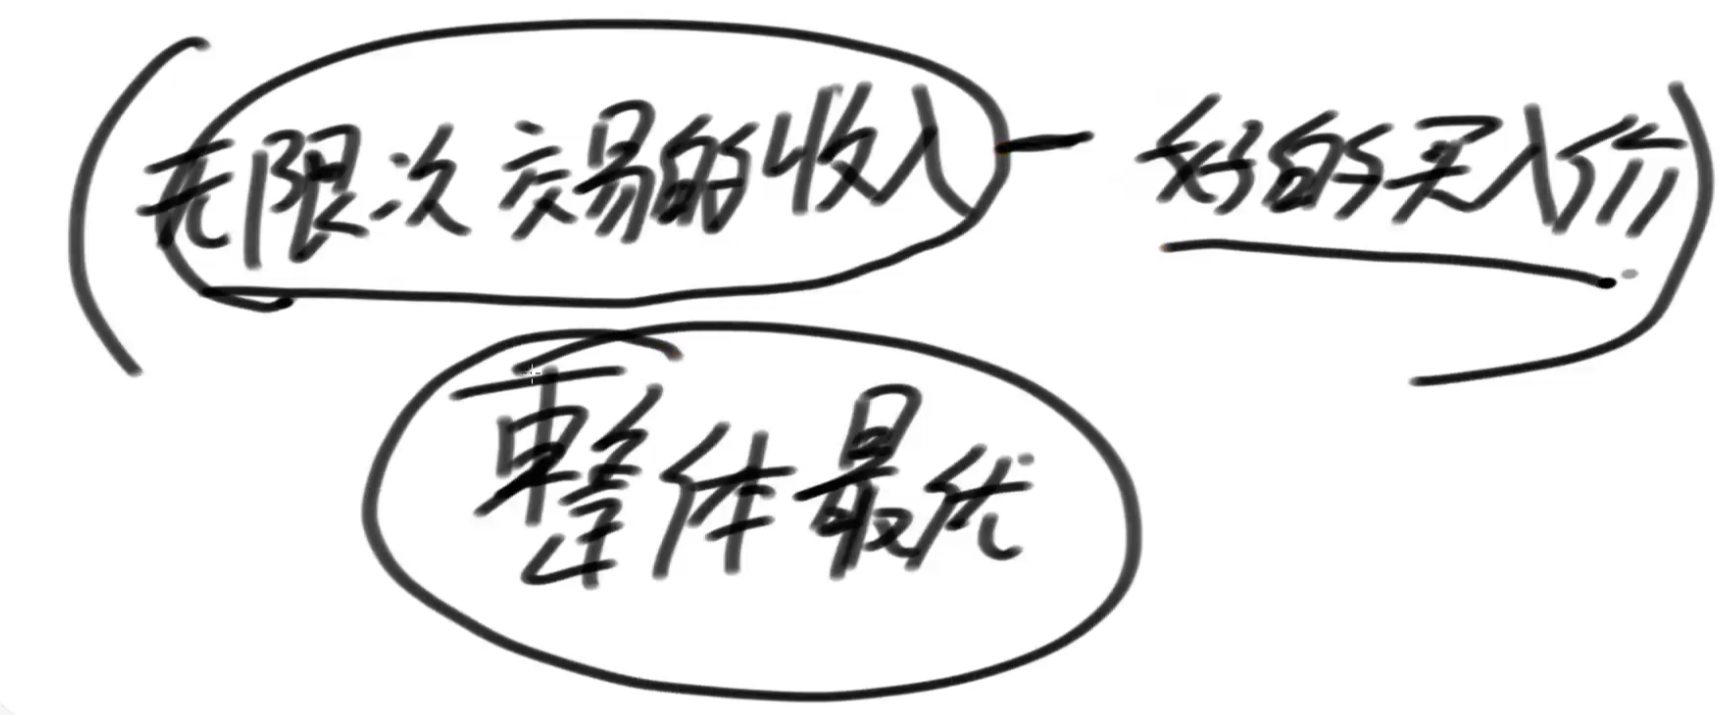 (无限次交易的收入 - 好的买入价)
整体最优